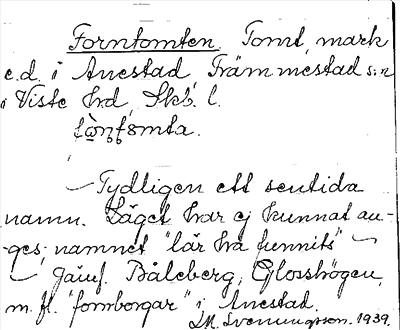 Forntomten. Tomt, mark
e.d. i Anestad, Främmestad s:n
i Viste hrd, Skb. l.
Tydligen ett sentida
namn. Läget har ej kunnat an-
ges; namnet "lär ha funnits"
Jämf. Båleberg, Glosshögen,
m. fl. "fornborgar" i Anestad.
Svenungsson. 1939.